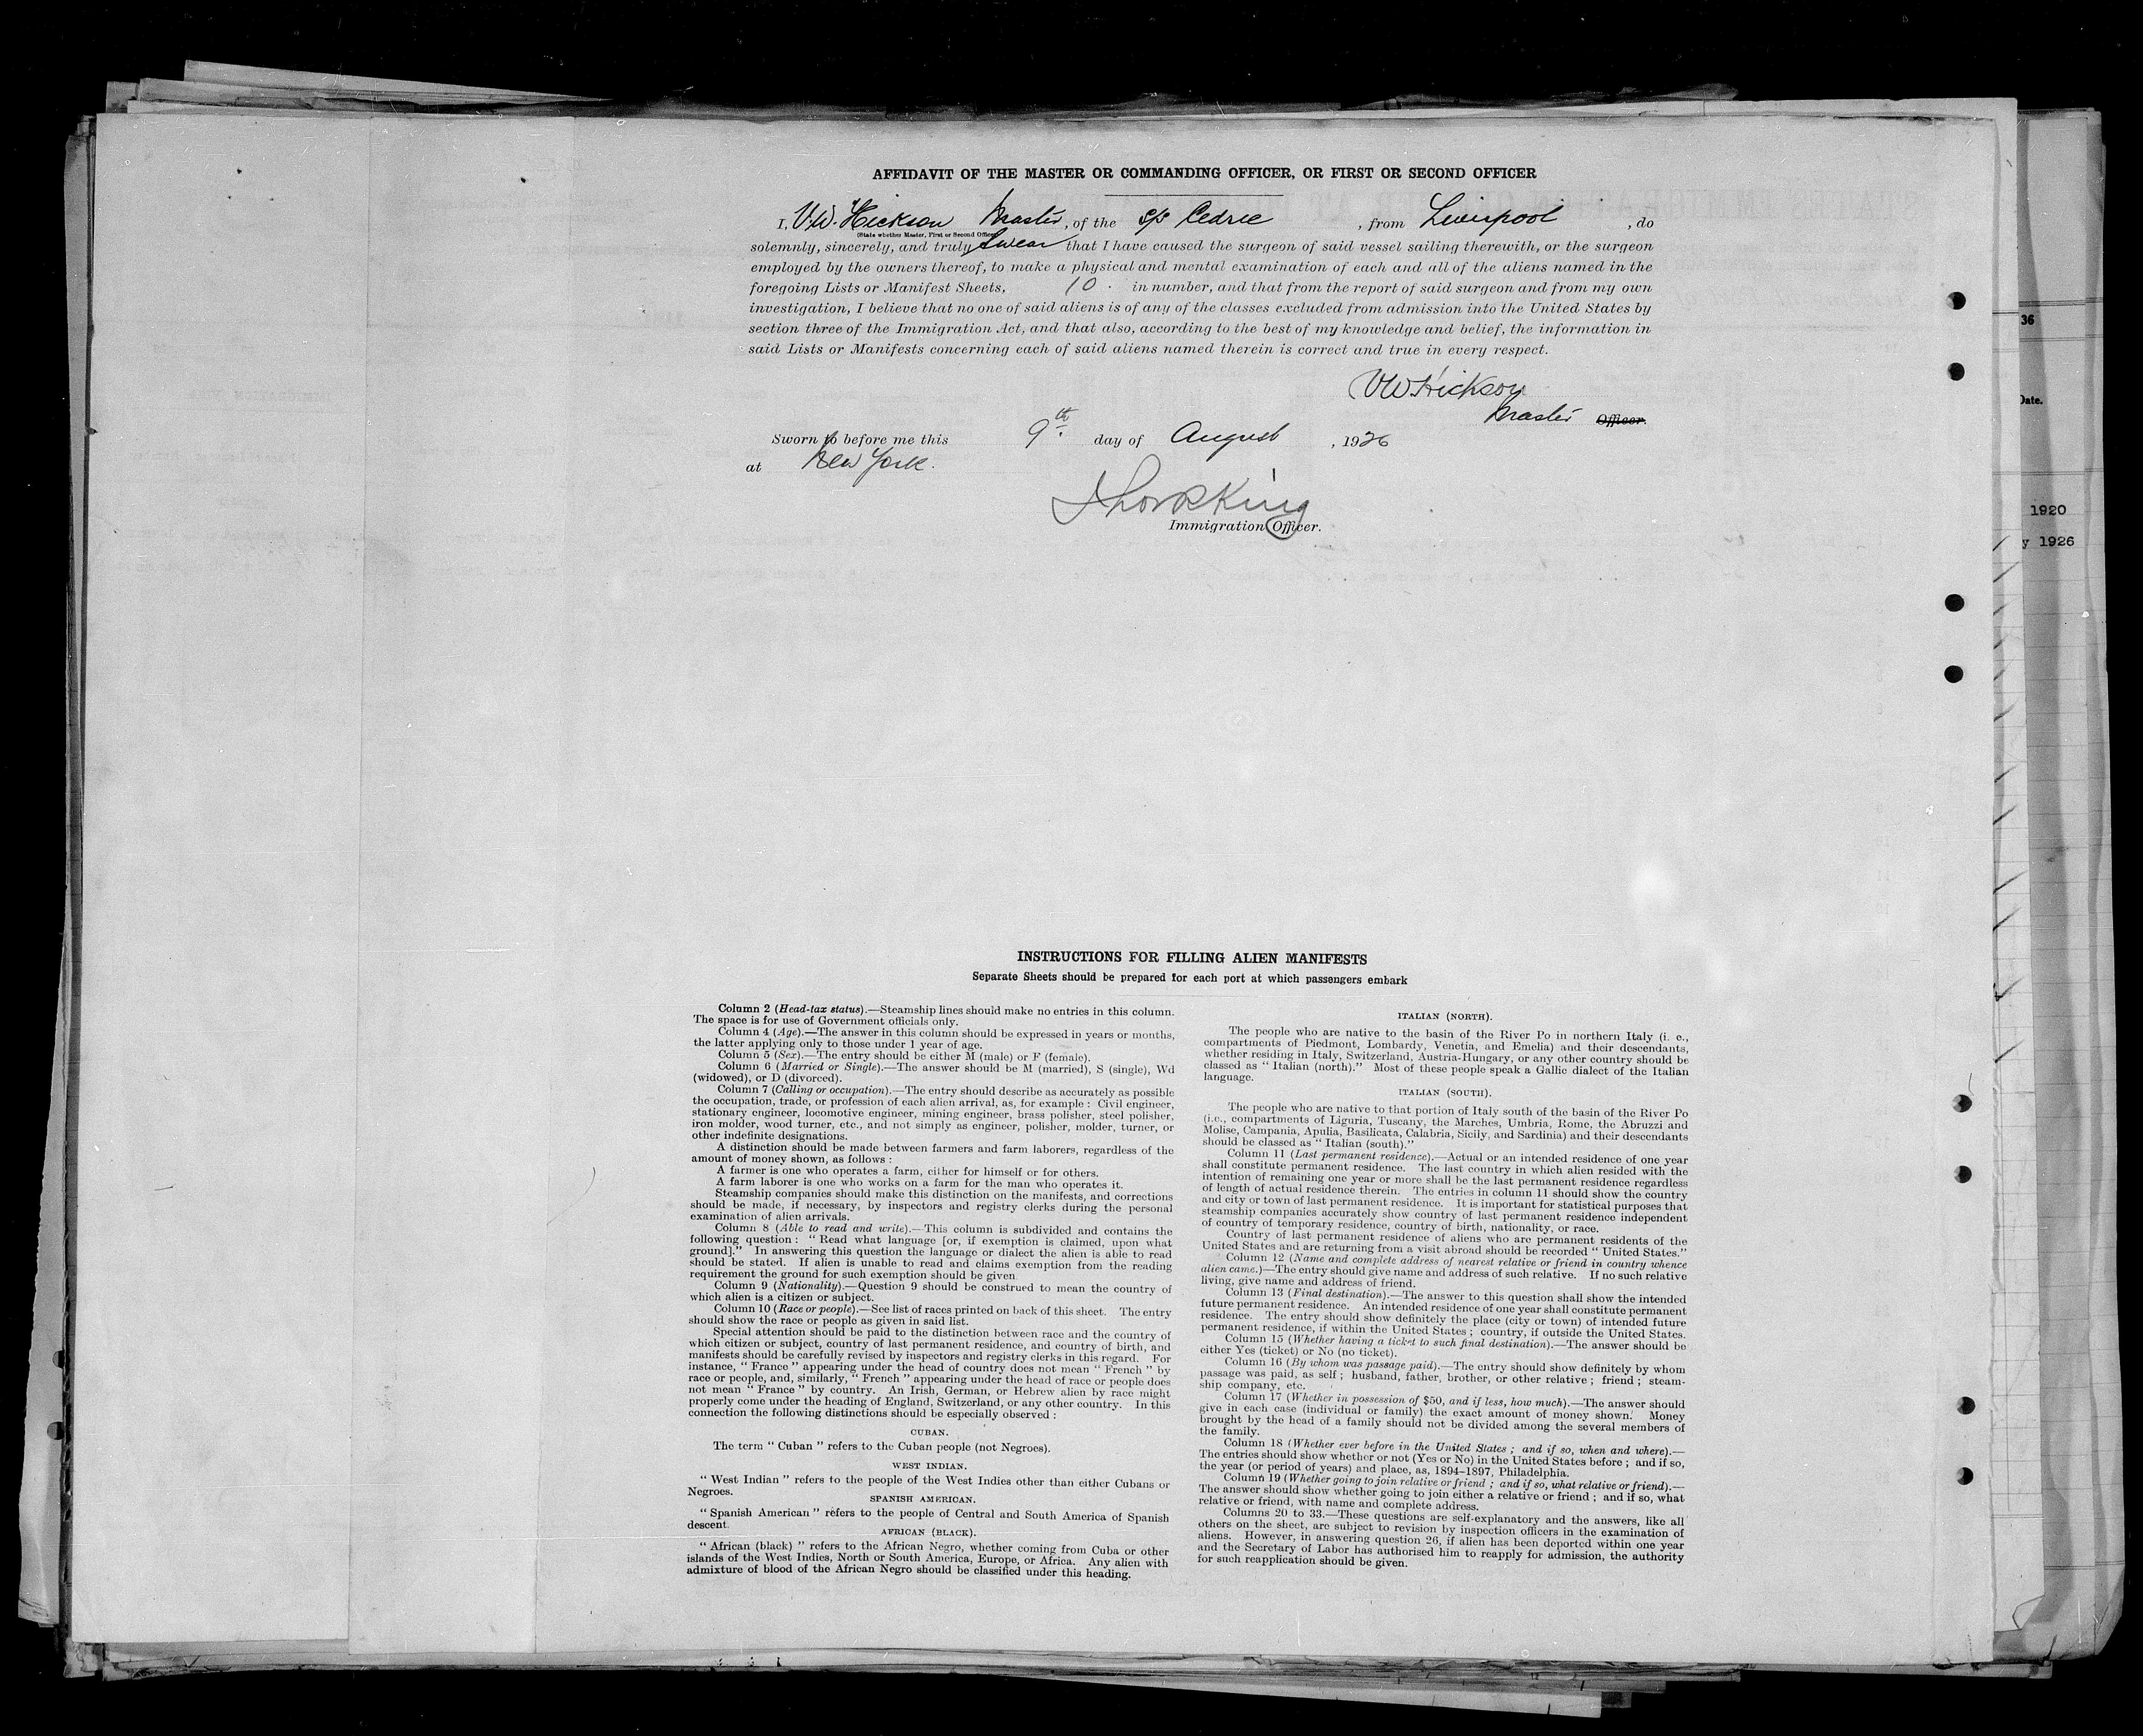 AFFIDAVIT OF THE MASTER OR COMMANDING OFFICER, OR FIRST OR SECOND OFFICER
I, V.W. Hickson Master, of the S/S Cedric, from Liverpool, do
(State whether Master, First or Second Officer)
solemnly, sincerely, and truly swear that I have caused the surgeon of said vessel sailing therewith, or the surgeon
employed by the owners thereof, to make a physical and mental examination of each and all of the aliens named in the
foregoing Lists or Manifest Sheets, 10. in number, and that from the report of said surgeon and from my own
investigation, I believe that no one of said aliens is of any of the classes excluded from admission into the United States by
section three of the Immigration Act, and that also, according to the best of my knowledge and belief, the information in
said Lists or Manifests concerning each of said aliens named therein is correct and true in every respect.
VW Hickson
Master Officer.
Sworn to before me this 9th day of August, 1926
at New York.
Immigration Officer.
36
Date.
1920
y 1926
INSTRUCTIONS FOR FILLING ALIEN MANIFESTS
Separate Sheets should be prepared for each port at which passengers embark
Column 2 (Head-tax status).—Steamship lines should make no entries in this column.
The space is for use of Government officials only.
Column 4 (Age).—The answer in this column should be expressed in years or months,
the latter applying only to those under 1 year of age.
Column 5 (Sex).—The entry should be either M (male) or F (female).
Column 6 (Married or Single).—The answer should be M (married), S (single), Wd
(widowed), or D (divorced).
Column 7 (Calling or occupation).—The entry should describe as accurately as possible
the occupation, trade, or profession of each alien arrival, as, for example : Civil engineer,
stationary engineer, locomotive engineer, mining engineer, brass polisher, steel polisher,
iron molder, wood turner, etc., and not simply as engineer, polisher, molder, turner, or
other indefinite designations.
A distinction should be made between farmers and farm laborers, regardless of the
amount of money shown, as follows :
A farmer is one who operates a farm, either for himself or for others.
A farm laborer is one who works on a farm for the man who operates it.
Steamship companies should make this distinction on the manifests, and corrections
should be made, if necessary, by inspectors and registry clerks during the personal
examination of alien arrivals.
Column 8 (Able to read and write).—This column is subdivided and contains the
following question : " Read what language [or, if exemption is claimed, upon what
ground]." In answering this question the language or dialect the alien is able to read
should be stated. If alien is unable to read and claims exemption from the reading
requirement the ground for such exemption should be given
Column 9 (Nationality).—Question 9 should be construed to mean the country of
which alien is a citizen or subject.
Column 10 (Race or people).—See list of races printed on back of this sheet. The entry
should show the race or people as given in said list.
Special attention should be paid to the distinction between race and the country of
which citizen or subject, country of last permanent residence, and country of birth, and
manifests should be carefully revised by inspectors and registry clerks in this regard. For
instance, " France " appearing under the head of country does not mean " French " by
race or people, and, similarly, " French " appearing under the head of race or people does
not mean " France " by country. An Irish, German, or Hebrew alien by race might
properly come under the heading of England, Switzerland, or any other country. In this
connection the following distinctions should be especially observed :
CUBAN.
The term " Cuban " refers to the Cuban people (not Negroes).
WEST INDIAN.
" West Indian " refers to the people of the West Indies other than either Cubans or
Negroes.
SPANISH AMERICAN.
" Spanish American " refers to the people of Central and South America of Spanish
descent.
AFRICAN (BLACK).
" African (black) " refers to the African Negro, whether coming from Cuba or other
islands of the West Indies, North or South America, Europe, or Africa. Any alien with
admixture of blood of the African Negro should be classified under this heading.
ITALIAN (NORTH).
The people who are native to the basin of the River Po in northern Italy (i. e.,
compartments of Piedmont, Lombardy, Venetia, and Emelia) and their descendants,
whether residing in Italy, Switzerland, Austria-Hungary, or any other country should be
classed as " Italian (north)." Most of these people speak a Gallic dialect of the Italian
language.
ITALIAN (SOUTH).
The people who are native to that portion of Italy south of the basin of the River Po
(i.e., compartments of Liguria, Tuscany, the Marches, Umbria, Rome, the Abruzzi and
Molise, Campania, Apulia, Basilicata, Calabria, Sicily, and Sardinia) and their descendants
should be classed as " Italian (south)."
Column 11 (Last permanent residence).—Actual or an intended residence of one year
shall constitute permanent residence. The last country in which alien resided with the
intention of remaining one year or more shall be the last permanent residence regardless
of length of actual residence therein. The entries in column 11 should show the country
and city or town of last permanent residence. It is important for statistical purposes that
steamship companies accurately show country of last permanent residence independent
of country of temporary residence, country of birth, nationality, or race.
Country of last permanent residence of aliens who are permanent residents of the
United States and are returning from a visit abroad should be recorded " United States."
Column 12 (Name and complete address of nearest relative or friend in country whence
alien came.)—The entry should give name and address of such relative. If no such relative
living, give name and address of friend.
Column 13 (Final destination).—The answer to this question shall show the intended
future permanent residence. An intended residence of one year shall constitute permanent
residence. The entry should show definitely the place (city or town) of intended future
permanent residence, if within the United States ; country, if outside the United States.
Column 15 (Whether having a ticket to such final destination).—The answer should be
either Yes (ticket) or No (no ticket).
Column 16 (By whom was passage paid).—The entry should show definitely by whom
passage was paid, as self ; husband, father, brother, or other relative ; friend ; steam-
ship company, etc.
Column 17 (Whether in possession of $50, and if less, how much).—The answer should
give in each case (individual or family) the exact amount of money shown. Money
brought by the head of a family should not be divided among the several members of
the family.
Column 18 (Whether ever before in the United States ; and if so, when and where).—
The entries should show whether or not (Yes or No) in the United States before ; and if so,
the year (or period of years) and place, as, 1894–1897, Philadelphia.
Column 19 (Whether going to join relative or friend ; and if so, what relative or friend).—
The answer should show whether going to join either a relative or friend ; and if so, what
relative or friend, with name and complete address.
Columns 20 to 33.—These questions are self-explanatory and the answers, like all
others on the sheet, are subject to revision by inspection officers in the examination of
aliens. However, in answering question 26, if alien has been deported within one year
and the Secretary of Labor has authorised him to reapply for admission, the authority
for such reapplication should be given.